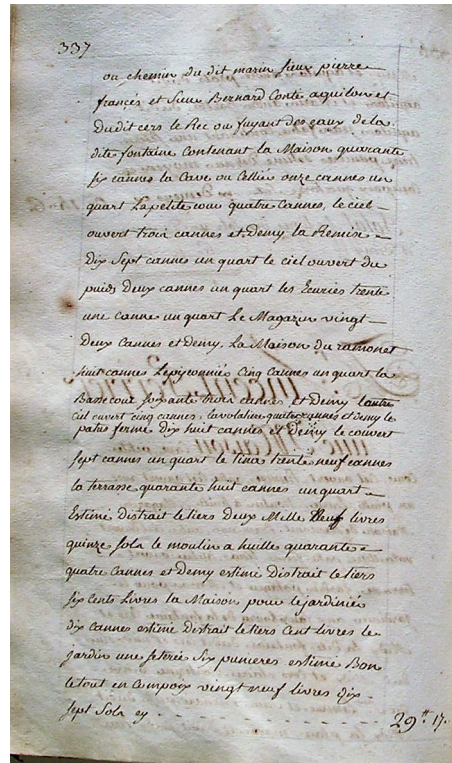 337
ou chemin du dit marin sieur pierre
francés et sieur Bernard Conte aquilon et
Dudit cers le Rec ou fuyant des eaux de la
dite fontaine Contenant la Maison quarante
six cannes la Cave ou Cellié onze cannes un
quart La petite cour quatre Cannes, le ciel
ouvert trois cannes et Demy la Remise
Dix Sept cannes un quart le ciel ouvert du
puids Deux cannes un quart les Ecuries trente
une canne un quart Le Magazin vingt
Deux Cannes et Demy, La Maison du ramonet
huit cannes Le pigeonnié Cinq Cannes un quart la
Basse cour soixante trois cannes et Demy l'autre
Ciel ouvert cinq cannes, la volatiere quatre cannes et Demy le
patis fermé dix huit cannes et Demy le couvert
sept cannes un quart le tina trente neuf cannes
la terrasse quarante huit cannes un quart
Estimé distrait le tiers deux Mille Neuf livres
quinze sols le moulin a huille quarante
quatre Cannes et Demy estimé Distrait le tiers
six Cents Livres la Maison pour le jardinié
dix cannes estimé Distrait le tiers Cent livres le
jardin une seterée six punieres estimé Bon
le tout en Compoix vingt neuf livres dix
sept Sols cy 29ᵗᵗ 17